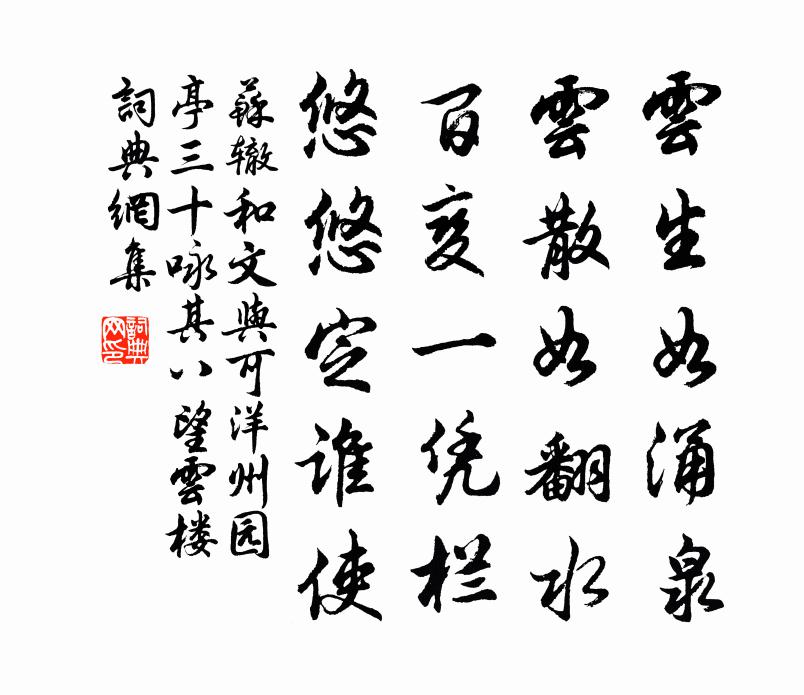 雲生如涌泉
雲散如翻水
百变一凭栏
悠悠定谁使
蘇辙和文與可洋州园
亭三十咏其八望雲楼
詞典網集
詞典网印